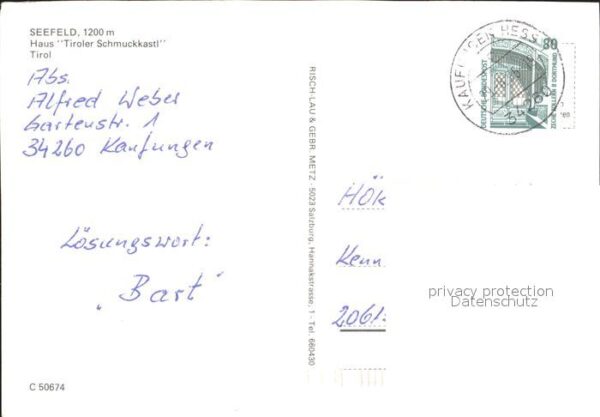 SEEFELD, 1200 m
Haus "Tiroler Schmuckkastl"
Tirol
Abs.
Alfred Weber
Gartenstr. 1
34260 Kaufungen
Lösungswort:
"Bart"
C 50674
RISCH-LAU & GEBR. METZ - 5023 Salzburg, Hannakstrasse, 1 - Tel. 660430
KAUFUNGEN HESS
34260
80
DEUTSCHE BUNDESPOST
ZECHE ZOLLERN II DORTMUND
HÖK
Kenn
2061
privacy protection
Datenschutz